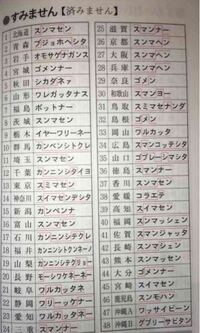 ●すみません【済みません】
1 北海道 スンマセン
2 青森 ブジョホヘシタ
3 岩手 オモサゲナガンス
4 宮城 ゴメンナー
5 秋田 シカダネァ
6 山形 ワレガッタナス
7 福島 ボットナー
8 茨城 スンマセン
9 栃木 イヤーワリーネー
10 群馬 カンベンシトクレ
11 埼玉 スマセン
12 千葉 カンニンシタイヨ
13 東京 スミマセン
14 神奈川 スイマセンデシタ
15 新潟 カンベンナ
16 富山 スンマセン
17 石川 カンニンシテクレ
18 福井 カンニンシトクンネーノ
19 山梨 カンニンシテクリョー
20 長野 モーシワケネーネー
21 岐阜 ワルカッタネ
22 静岡 ワリーッケナー
23 愛知 ワルカッタネ
24 三重 スンマセン
25 滋賀 スマンナー
26 京都 スンマヘン
27 大阪 スンマヘン
28 兵庫 スンマヘン
29 奈良 ゴメン
30 和歌山 スマンヨー
31 鳥取 スミマセナンダ
32 島根 ゴメン
33 岡山 ワルカッタ
34 広島 スマンコッテシタ
35 山口 ゴブレーシマシタ
36 徳島 スマン
37 香川 スマン
38 愛媛 コラエテ
39 高知 スイマセン
40 福岡 スンマッシェン
41 佐賀 スマンジャッタ
42 長崎 スンマシェン
43 熊本 スンマッセン
44 大分 ゴメンナー
45 宮崎 スイマセン
46 鹿児島 スンモハン
47 沖縄
48 沖縄